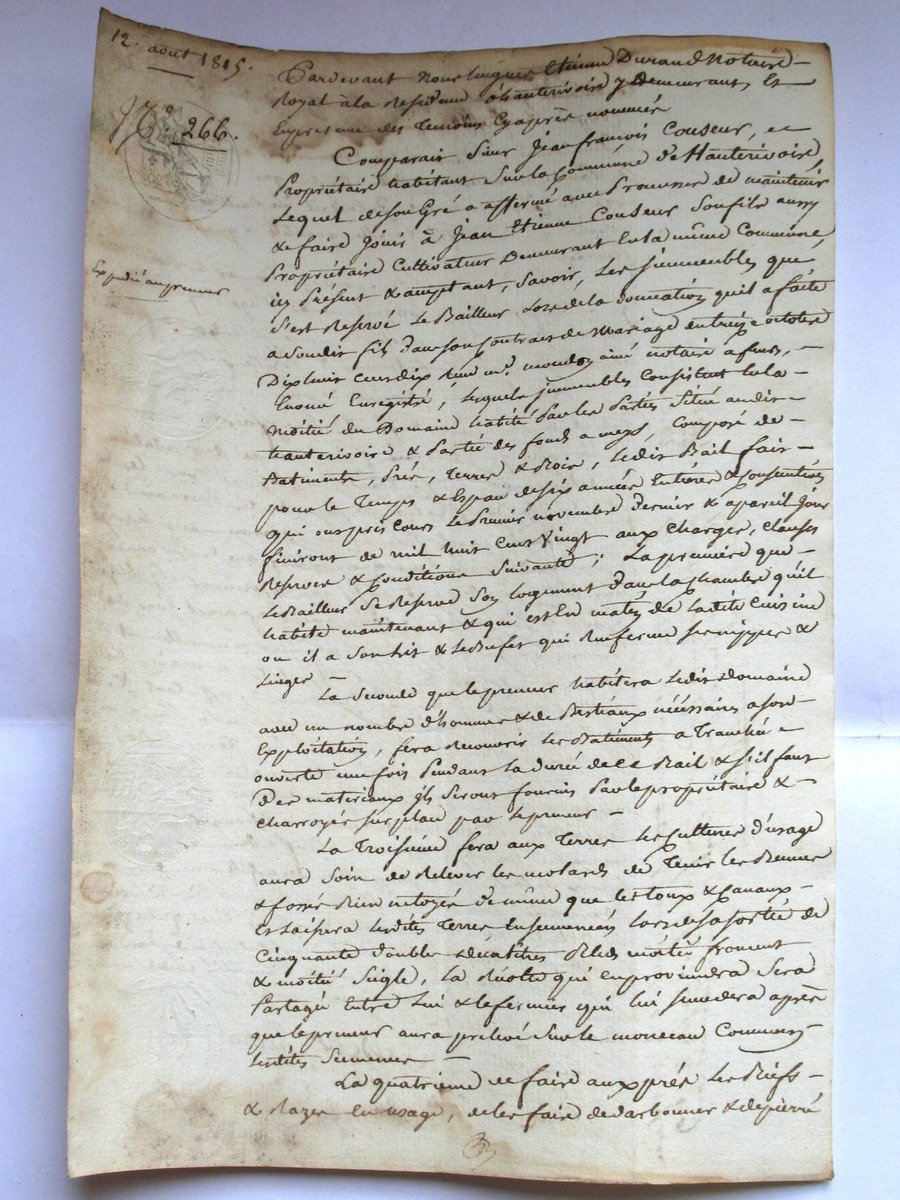 12. aout 1815.
N.° 266.
Expedié au preneur
Pardevant nous Etienne Durand Notaire
Royal à la Residence d'hauterivoire y Demeurant, Et
En presence des Temoins Cy après nommés
Comparait Sieur Jean François Couseur,
Propriétaire habitant Sur la Commune d'Hauterivoire,
Lequel de Son Gré a affermé avec Promesse de maintenir
& faire Jouir à Jean Etienne Couseur Son fils aussy
Propriétaire Cultivateur Demeurant En la même Commune,
icy Présent & acceptant, Savoir, Les Immeubles que
S'est Reservé Le Bailleur Lors de la donnation qu'il a faite
a Son dit fils dans Son Contrat de Mariage du treize octobre
Dix huit cent dix ainé notaire a
Enregistré, Lesquels immeubles Consistent En la
moitié du Domaine habité Par les Parties Situé au dit
hauterivoire & Partie des fonds a Composé de
Batiments, Prés, Terres & Bois, Le dit Bail fait
pour le Temps & Espace de Six années Entières & Consécutives
qui ont pris Cours Le Premier novembre Dernier & a pareil Jour
finiront de mil huit Cent Vingt aux Charges, Clauses
Reserves & Conditions Suivantes; La première que
Le Bailleur Se Reserve Son logement dans la Chambre qu'il
habite maintenant & qui est En de la dite Cuisine
ou il a Son Lit & Le Bufet qui Renferme Ses nippes &
Linges
La Seconde que le preneur habitera Le dit Domaine
avec un nombre d'hommes & de Bestiaux nécessaires a Son
Exploitation, fera Recouvrir Les Batiments a Tranchée
ouverte une fois Pendant la durée de Ce Bail & S'il faut
Des materiaux ils Seront fournis Par le propriétaire &
Charroyés Sur place par Le preneur
La Troisième fera aux Terres Les Cultures d'usage
aura Soin de Relever les molards de Tenir Les
& fossés Bien netoyés De même que les &
Et Laissera Les dites Terres Ensemencées Lors de Sa Sortie de
Cinquante doubles Décalitres Bled moitié froment
& moitié Seigle, La Récolte qui en proviendra Sera
Partagée Entre Lui & le fermier qui lui Succedera après
que le preneur aura prelevé Sur le monceau Commun
Les dites Semences
La quatrième de faire aux prés Les Biefs
& Razes En usage, de les faire &